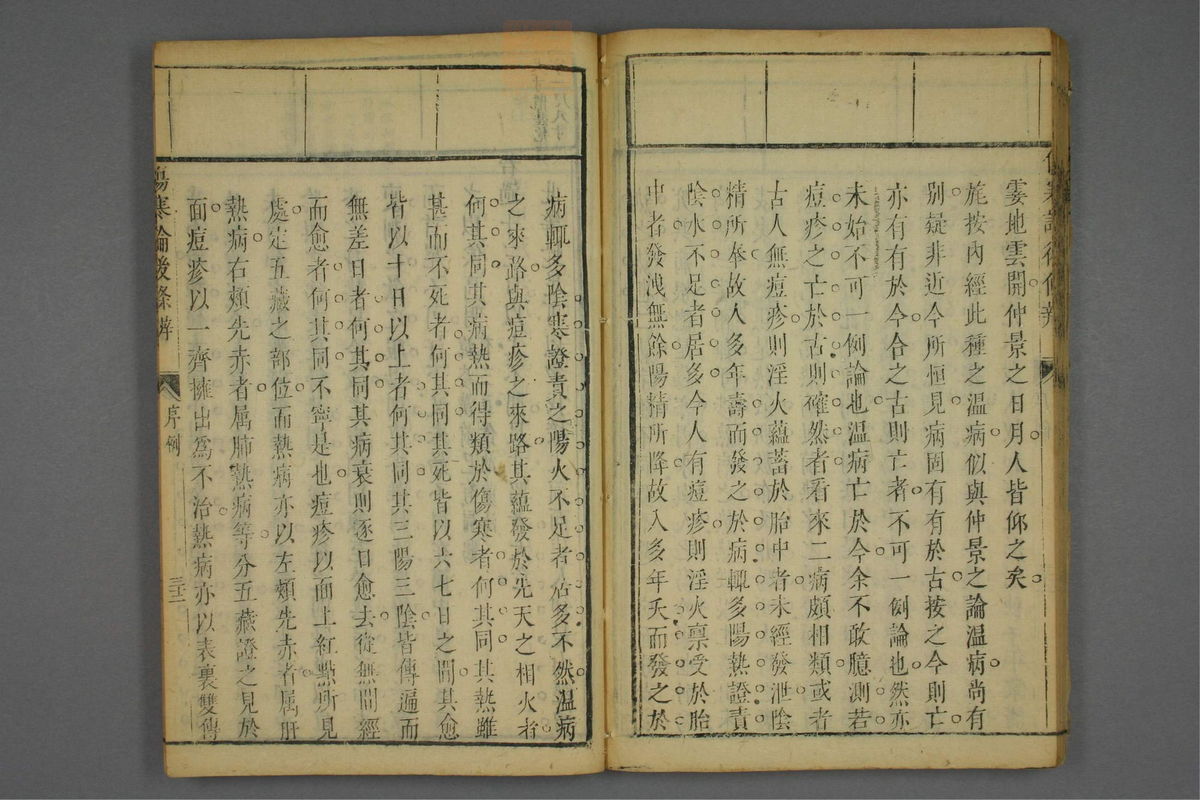 霎地雲開仲景之日月人皆仰之矣
旄按內經此種之温病似與仲景之論温病尚有
别疑非近今所恒見病固有有於古按之今則亡
亦有有於今合之古則亡者不可一例論也然亦
未始不可一例論也温病亡於今余不敢臆測若
痘疹之亡於古則確然者看來二病頗相類或者
古人無痘疹則淫火蘊蓄於胎中者未經發泄陰
精所奉故人多年壽而發之於病輒多陽熱證責
陰水不足者居多今人有痘疹則淫火禀受於胎
中者發洩無餘陽精所降故人多年夭而發之於
病輒多陰寒證責之陽火不足者居多不然温病
之來路與痘疹之來路其蘊發於先天之相火者
何其同其病熱而得類於傷寒者何其同其熱雖
甚而不死者何其同其死皆以六七日之間其愈
皆以十日以上者何其同其三陽三陰皆傳遍而
無差日者何其同其病衰則逐日愈去從無間經
而愈者何其同不寧是也痘疹以面上紅㸃所見
處定五藏之部位而熱病亦以左頰先赤者属肝
熱病右頰先赤者属肺熱病等分五藏證之見於
面痘疹以一齊擁出爲不治熱病亦以表裏雙傳
傷寒論後條辨
序例
三十二